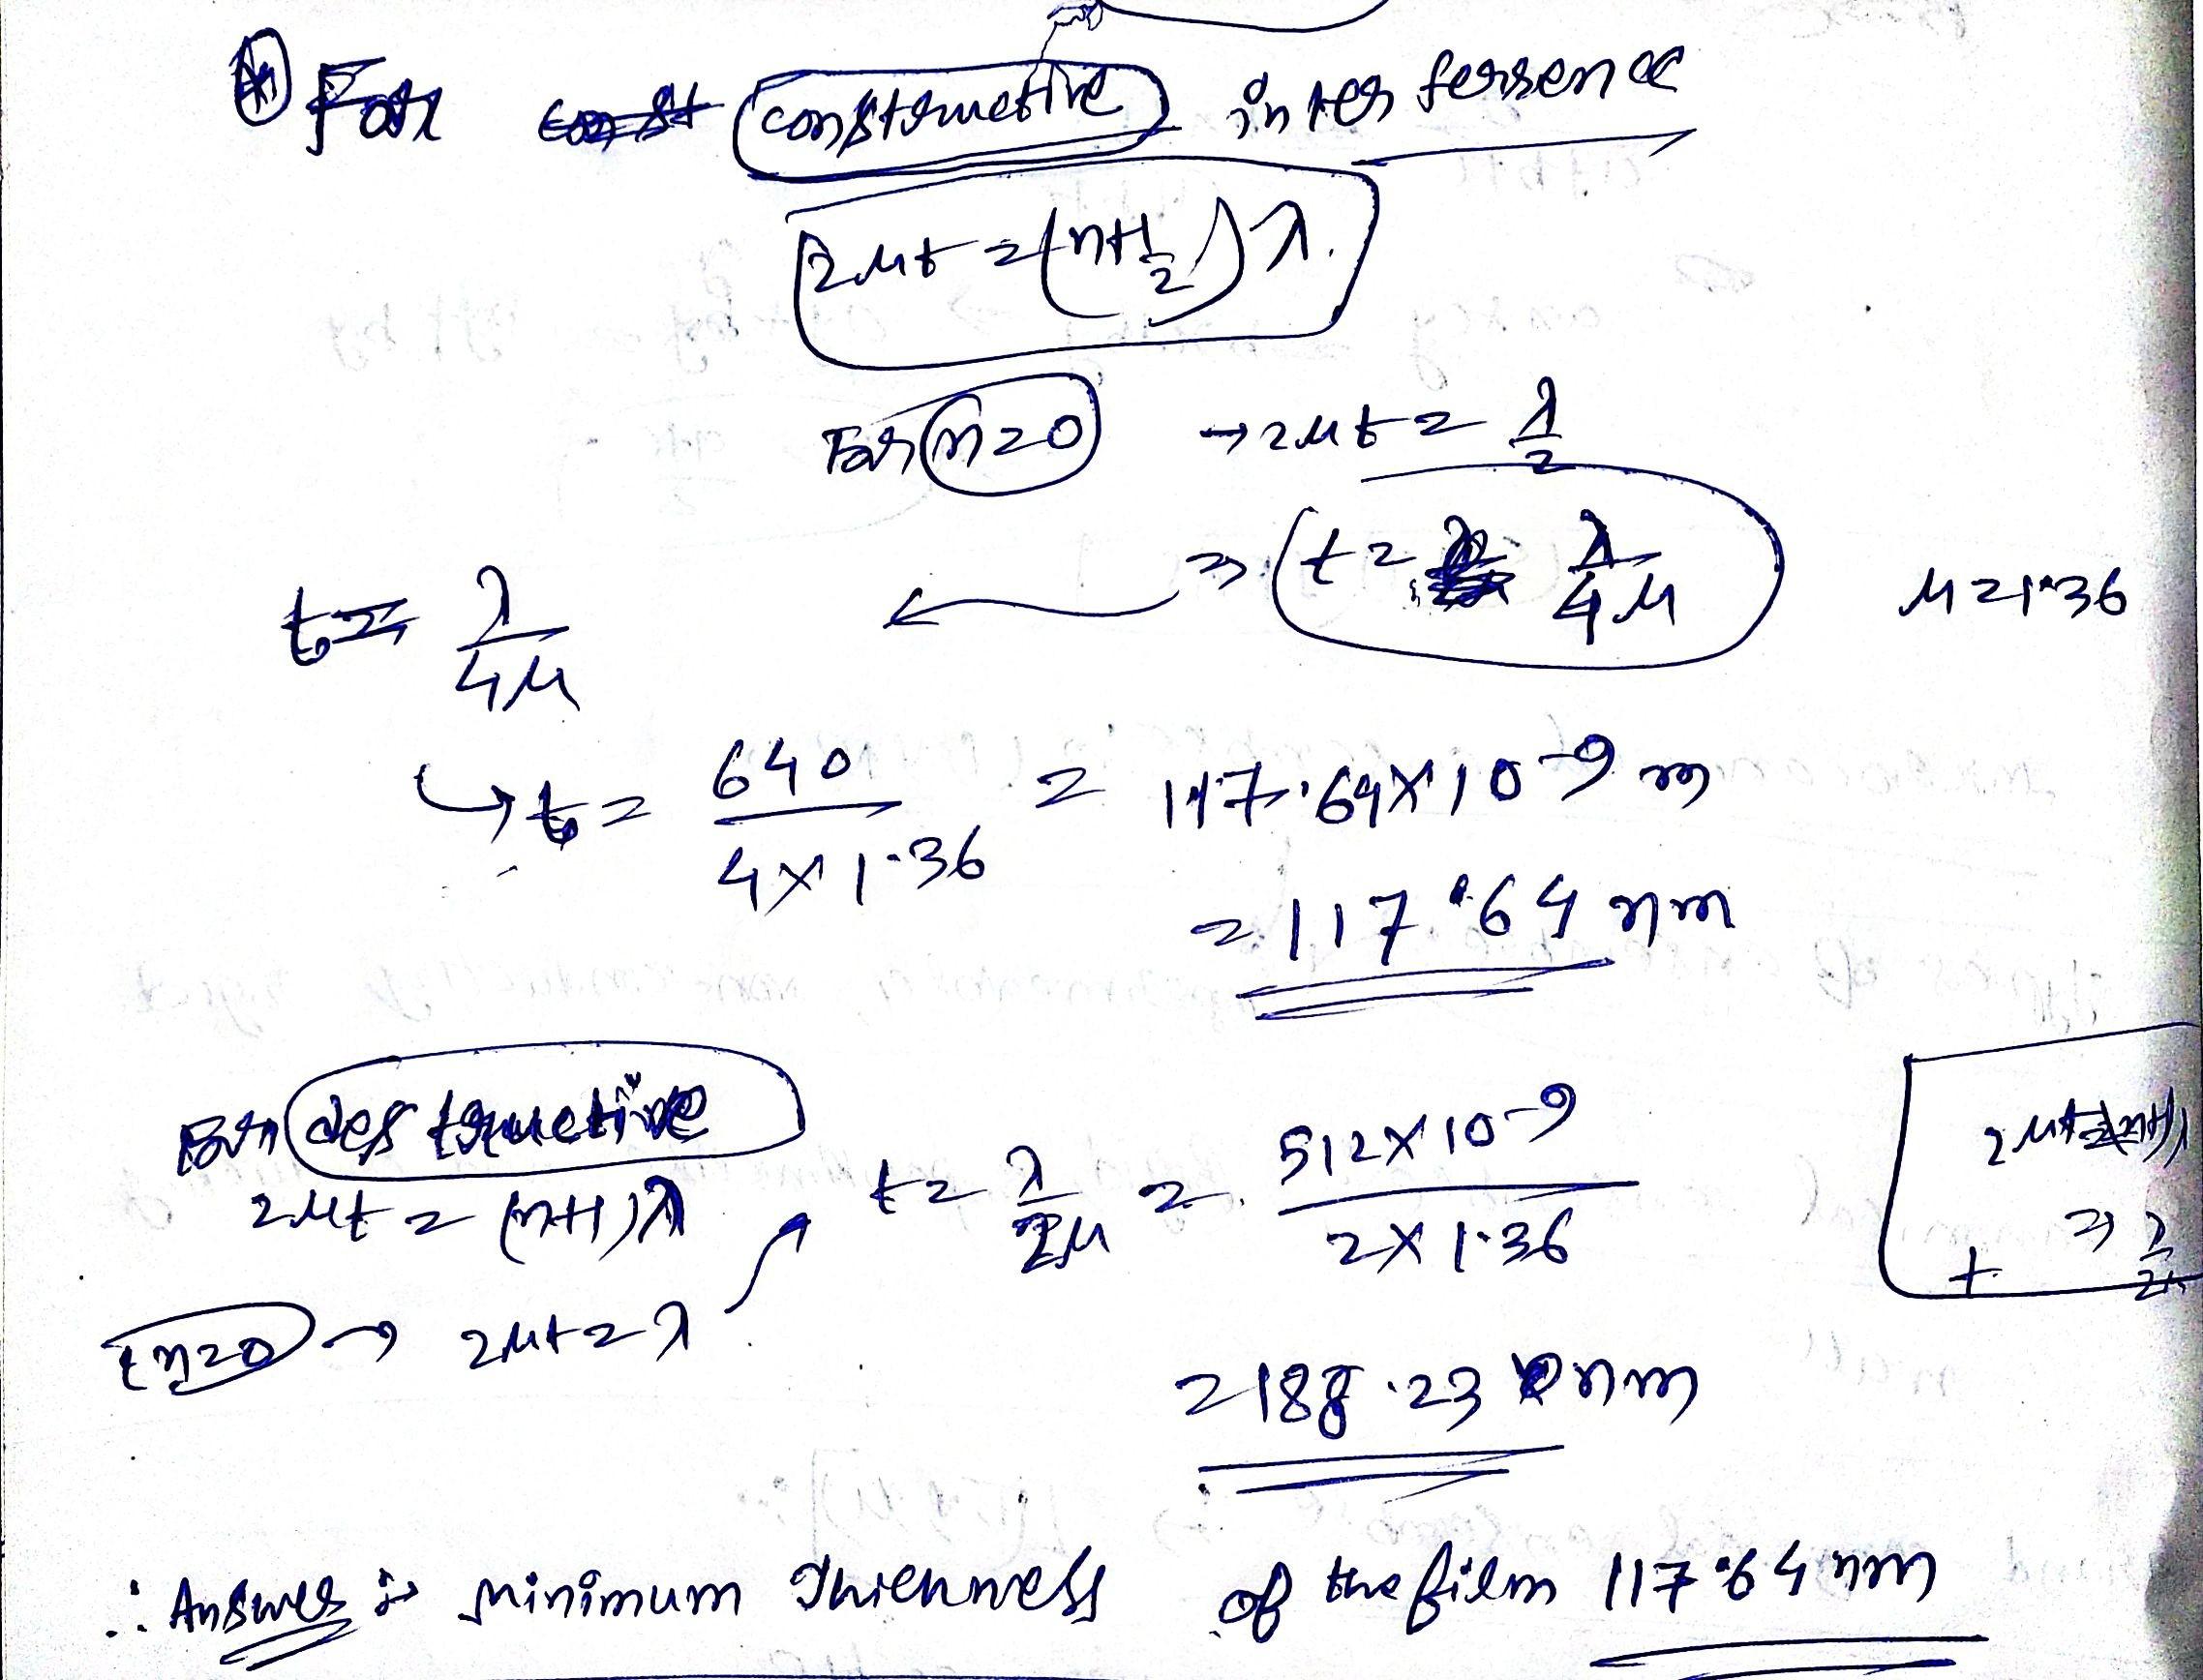 * For constructive interference
2μt = (n+1/2) λ.
For n=0 → 2μt = λ/2
⇒ t = λ/4μ
μ = 1.36
t = λ/4μ
↳ t = 640/4×1.36 = 117.64×10^-9 m
= 117.64 nm
For destructive
2μt = (n+1)λ
t = λ/2μ = 512×10^-9/2×1.36
n=0 → 2μt = λ
= 188.23 nm
∴ Answer :- Minimum thickness of the film 117.64 nm